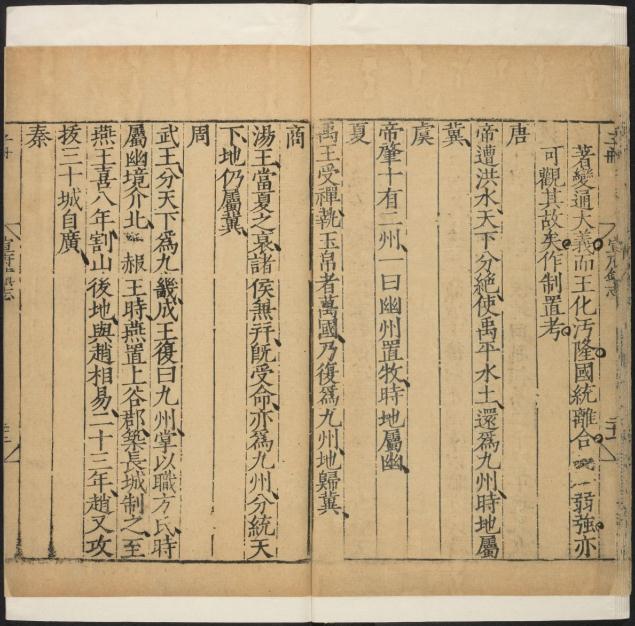 著變通大義而王化汚隆國統離合一弱強亦
可觀其故矣作制置考
唐
帝遭洪水天下分絕使禹平水土還爲九州時地屬
冀
虞
帝肇十有二州一曰幽州置牧時地屬幽
夏
禹王受禪執玉帛者萬國乃復爲九州地歸冀
商
湯王當夏之衰諸侯無幷既受命亦爲九州分統天
下地仍屬冀
周
武王分天下爲九畿成王復曰九州掌以職方氏時
屬幽境介北赧王時燕置上谷郡築長城制之至
燕王喜八年割山後地與趙相易二十三年趙又攻
拔三十城自廣
秦